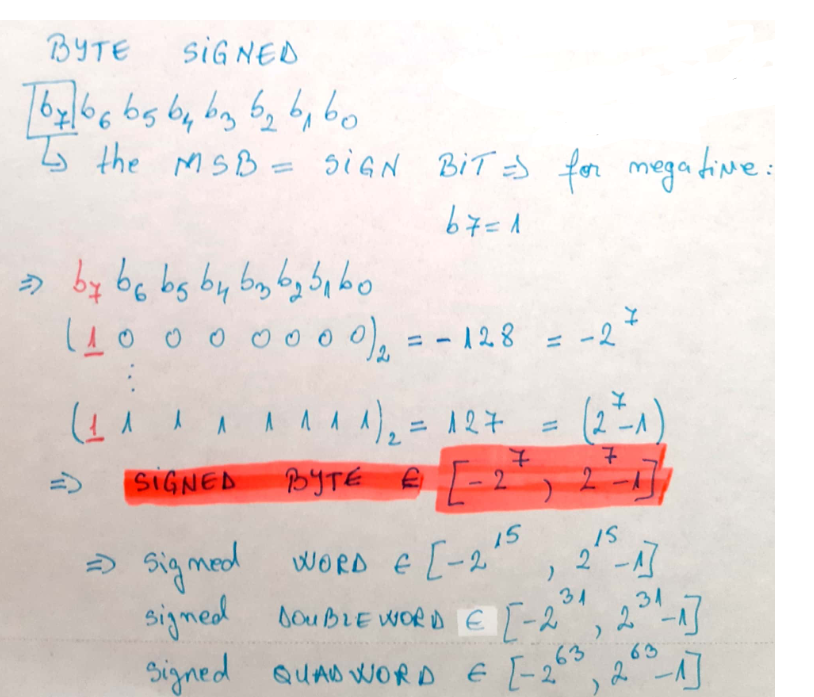 BYTE SIGNED
b₇ b₆ b₅ b₄ b₃ b₂ b₁ b₀
↳ the MSB = SIGN BIT ⇒ for negative:
b7=1
⇒ b₇ b₆ b₅ b₄ b₃ b₂ b₁ b₀
(1 0 0 0 0 0 0 0)₂ = -128 = -2⁷
⋮
(1 1 1 1 1 1 1 1)₂ = 127 = (2⁷-1)
⇒ SIGNED BYTE ∈ [-2⁷, 2⁷-1]
⇒ signed WORD ∈ [-2¹⁵, 2¹⁵-1]
signed DOUBLEWORD ∈ [-2³¹, 2³¹-1]
signed QUADWORD ∈ [-2⁶³, 2⁶³-1]